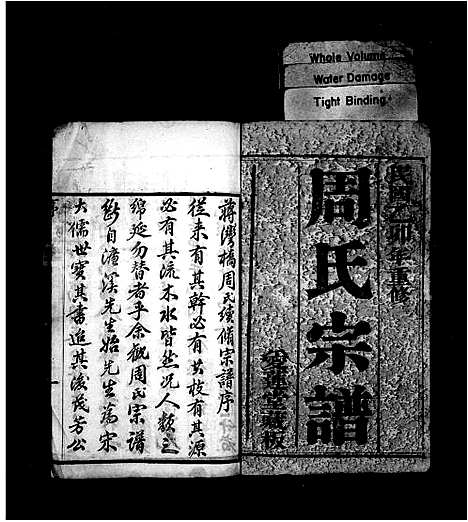 Whole Volume
Water Damage
Tight Binding
民國乙卯年重修
周氏宗譜
愛蓮堂藏板
蔣灣橋周氏續脩宗譜序
從来有其幹必有其枝有其源
必有其流木水皆然况人類之
綿延勿替者乎余觀周氏宗譜
斷自濂溪先生始先生為宋
大儒世寶其書進其後茂芳公